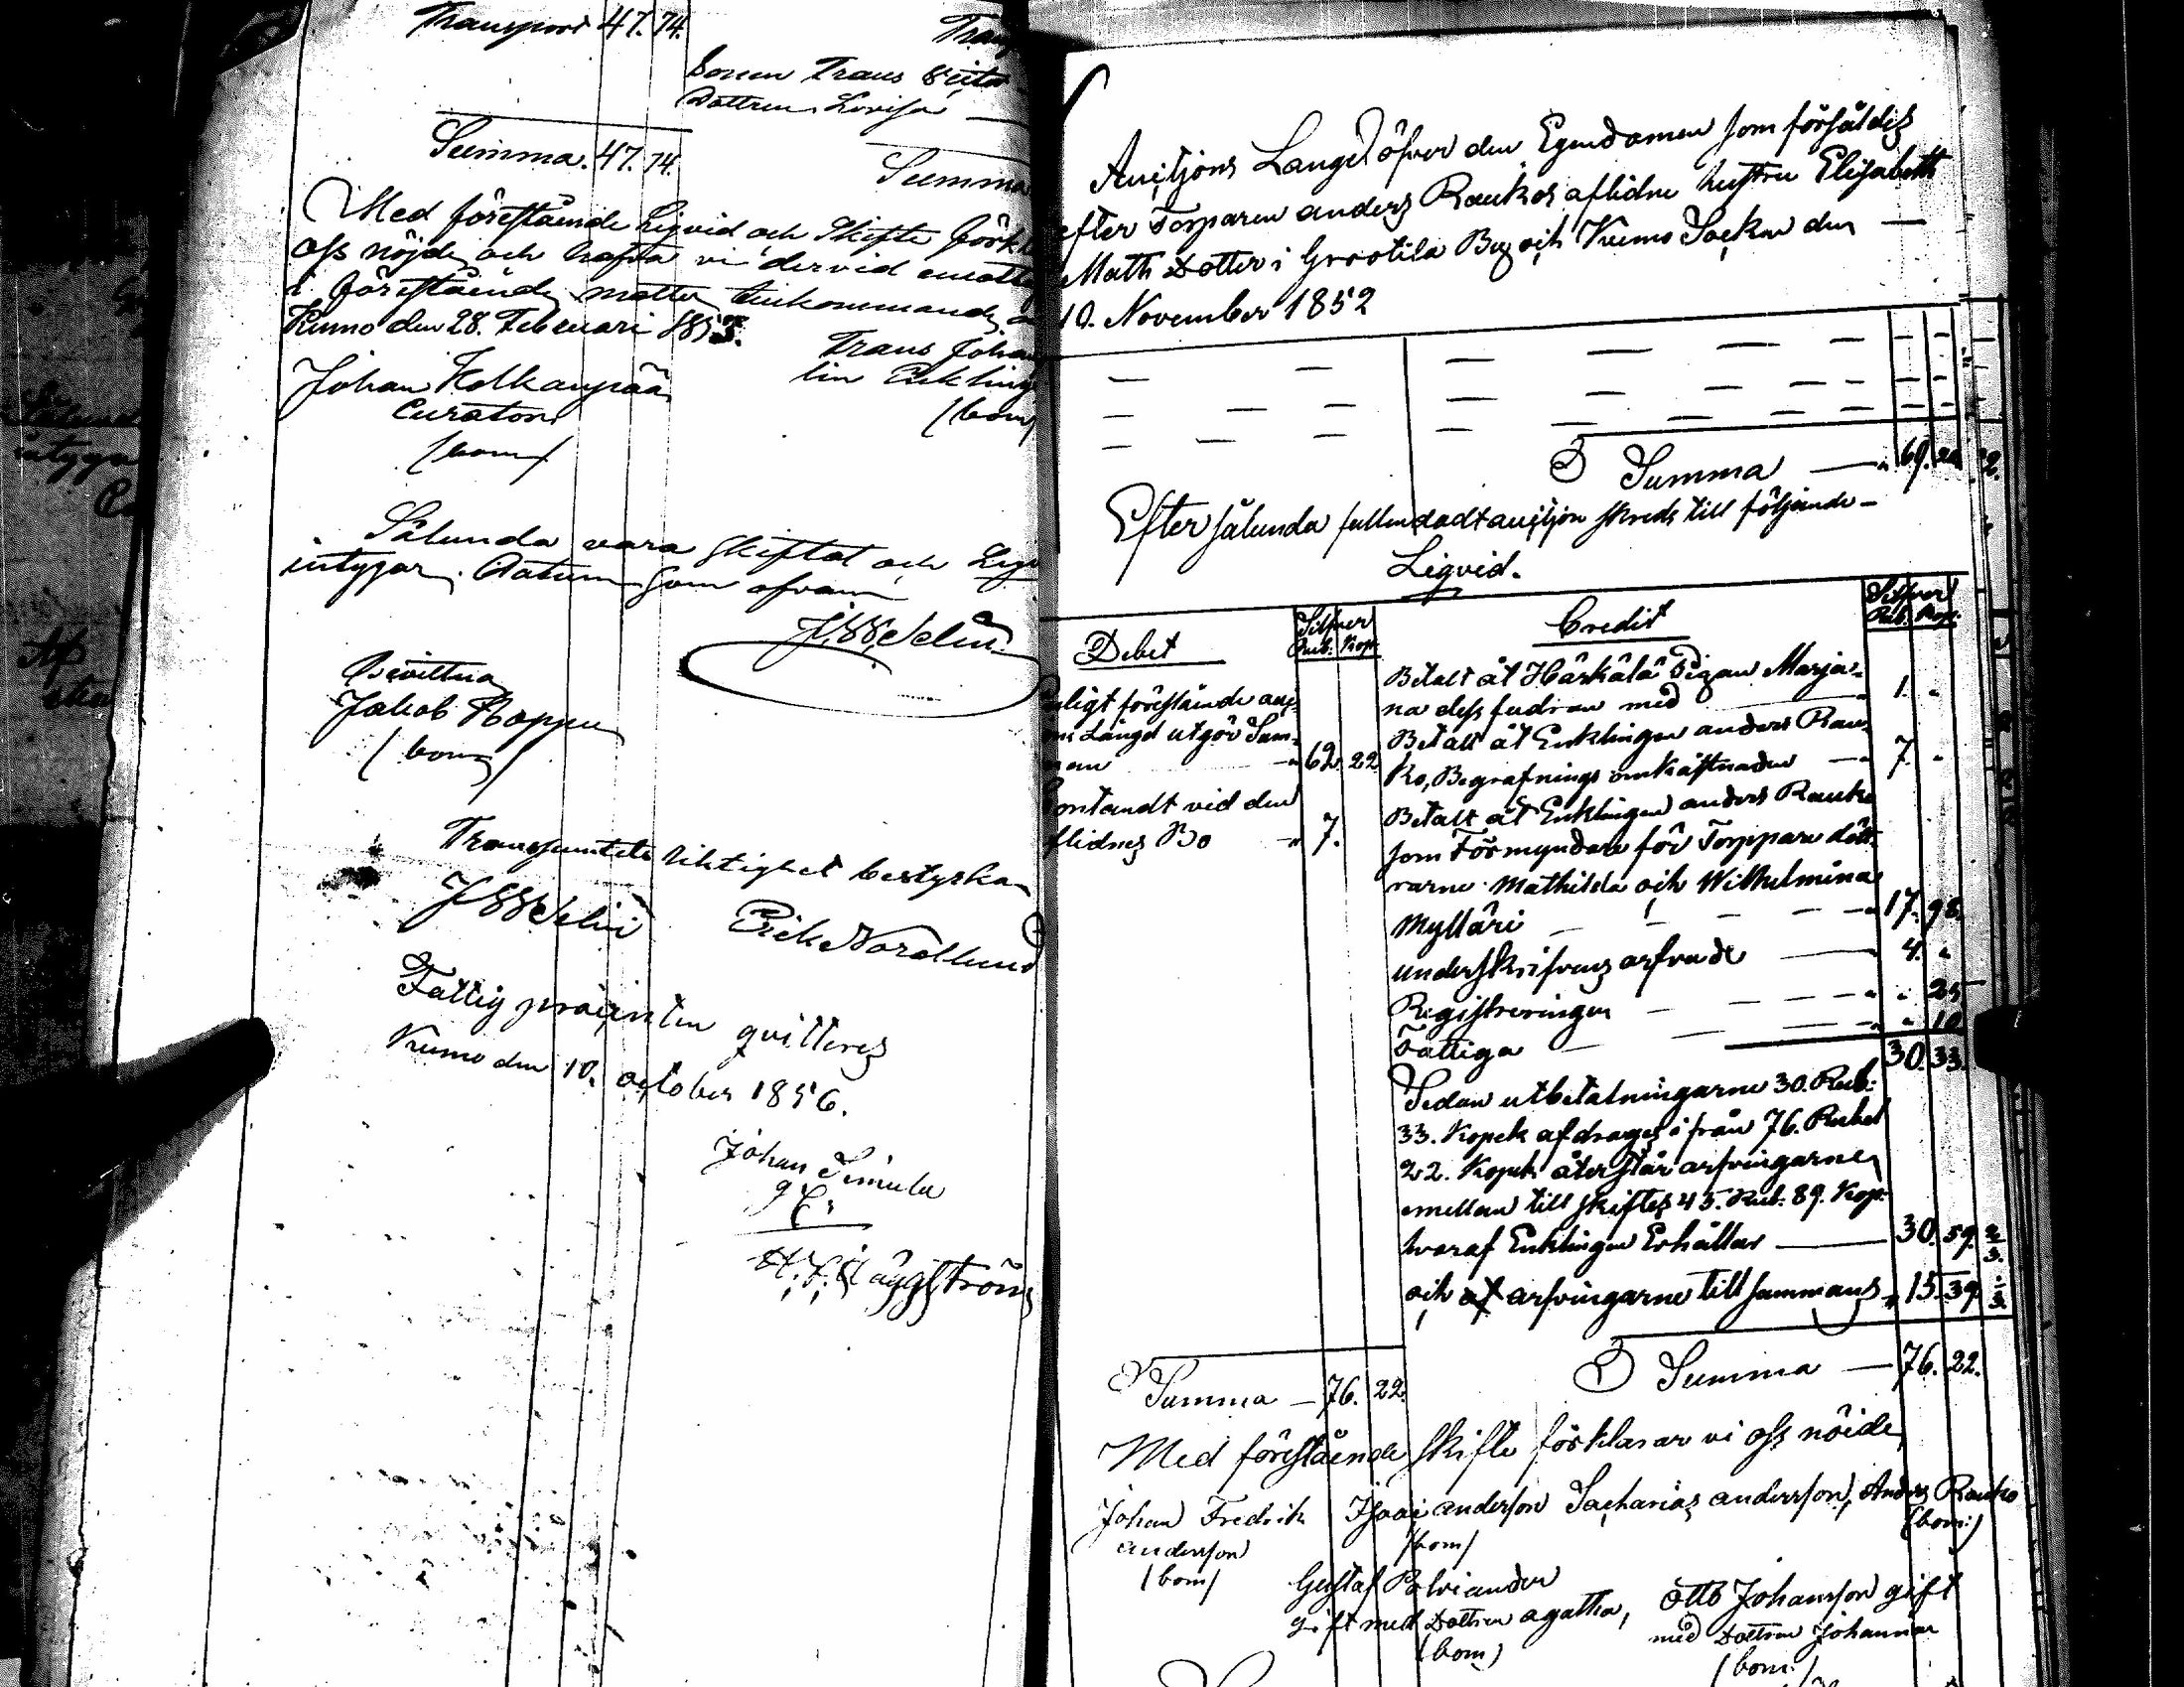 Transport 47. 74.
Sonen Frans
Dottren Lovisa
Summa. 47. 74.
Summa
Med föreståënde Liqvid och Skifte
oss nöjde och hafva vi dervid
i föreståënde måtto
Kumo den 28. Februari 1853.
Johan Kolkanpää
Curator
(bom)
Frans Johan
lin Enkling
(bom)
Sålunda vara skiftat och
intygar. Datum som ofvan
Bevittna
Jakob Roppu
(bom)
Transumtets riktighet bestyrka
Erik Nordlund
Fattig procenten qvitteras
Kumo den 10. October 1856.
Johan Simula
H. F. Häggström
Auctjons Längd öfver den Egendomen som försåldes
efter Torparen anders Raukos aflidne hustru Elisabeth
Math Dotter i Grootila By och Kumo Socken den —
10. November 1852
Summa — " 69. 22
Efter sålunda fullendadt auctjon skreds till följande –
Liqvid.
Debet
Silfver
Rub. Kop.
Credit
Silfver
Rub. Kop.
Enligt föreståënde auc-
ons Längd utgör Sum-
man — " 62. 22
Contandt vid den
aflidnes Bo — " 7.
Betalt åt Härkälä Pigan Marja-
na dess fudran med — 1. "
Betalt åt Enklingen anders Rau-
ko, Begrafnings omkåstnader — " 7. "
Betalt åt Enklingen anders Rauko
som Förmyndare för Torppare dött-
rarne Mathilda och Wilhelmina
Mylläri — — — " 17. 98.
underskrifvens arfvode — 4. "
Registreringen — — — " " 25
Fattiga — — — " " 10
30. 33.
Sedan utbetalningarne 30. Rub:
33. Kopek afdrages ifrån 76. Rubel
22. Kopek återstår arfvingarne
emellan till skiftes 45. Rub. 89. Kop.
hvaraf Enklingen Erhåller — 30. 59. 2/3.
och af arfvingarne till sammans " 15. 39. 1/3.
Summa — 76. 22.
Summa — 76. 22.
Med föreståënde skifte förklarar vi oss nöide
Johan Fredrik
andersson
(bom)
Isaac andersson
(bom)
Sacharias andersson,
Anders Rauko
(bom:)
Gustaf Polviander
gift med Dottren agatha,
(bom)
Otto Johansson gift
med Dottren Johanna
(bom:)